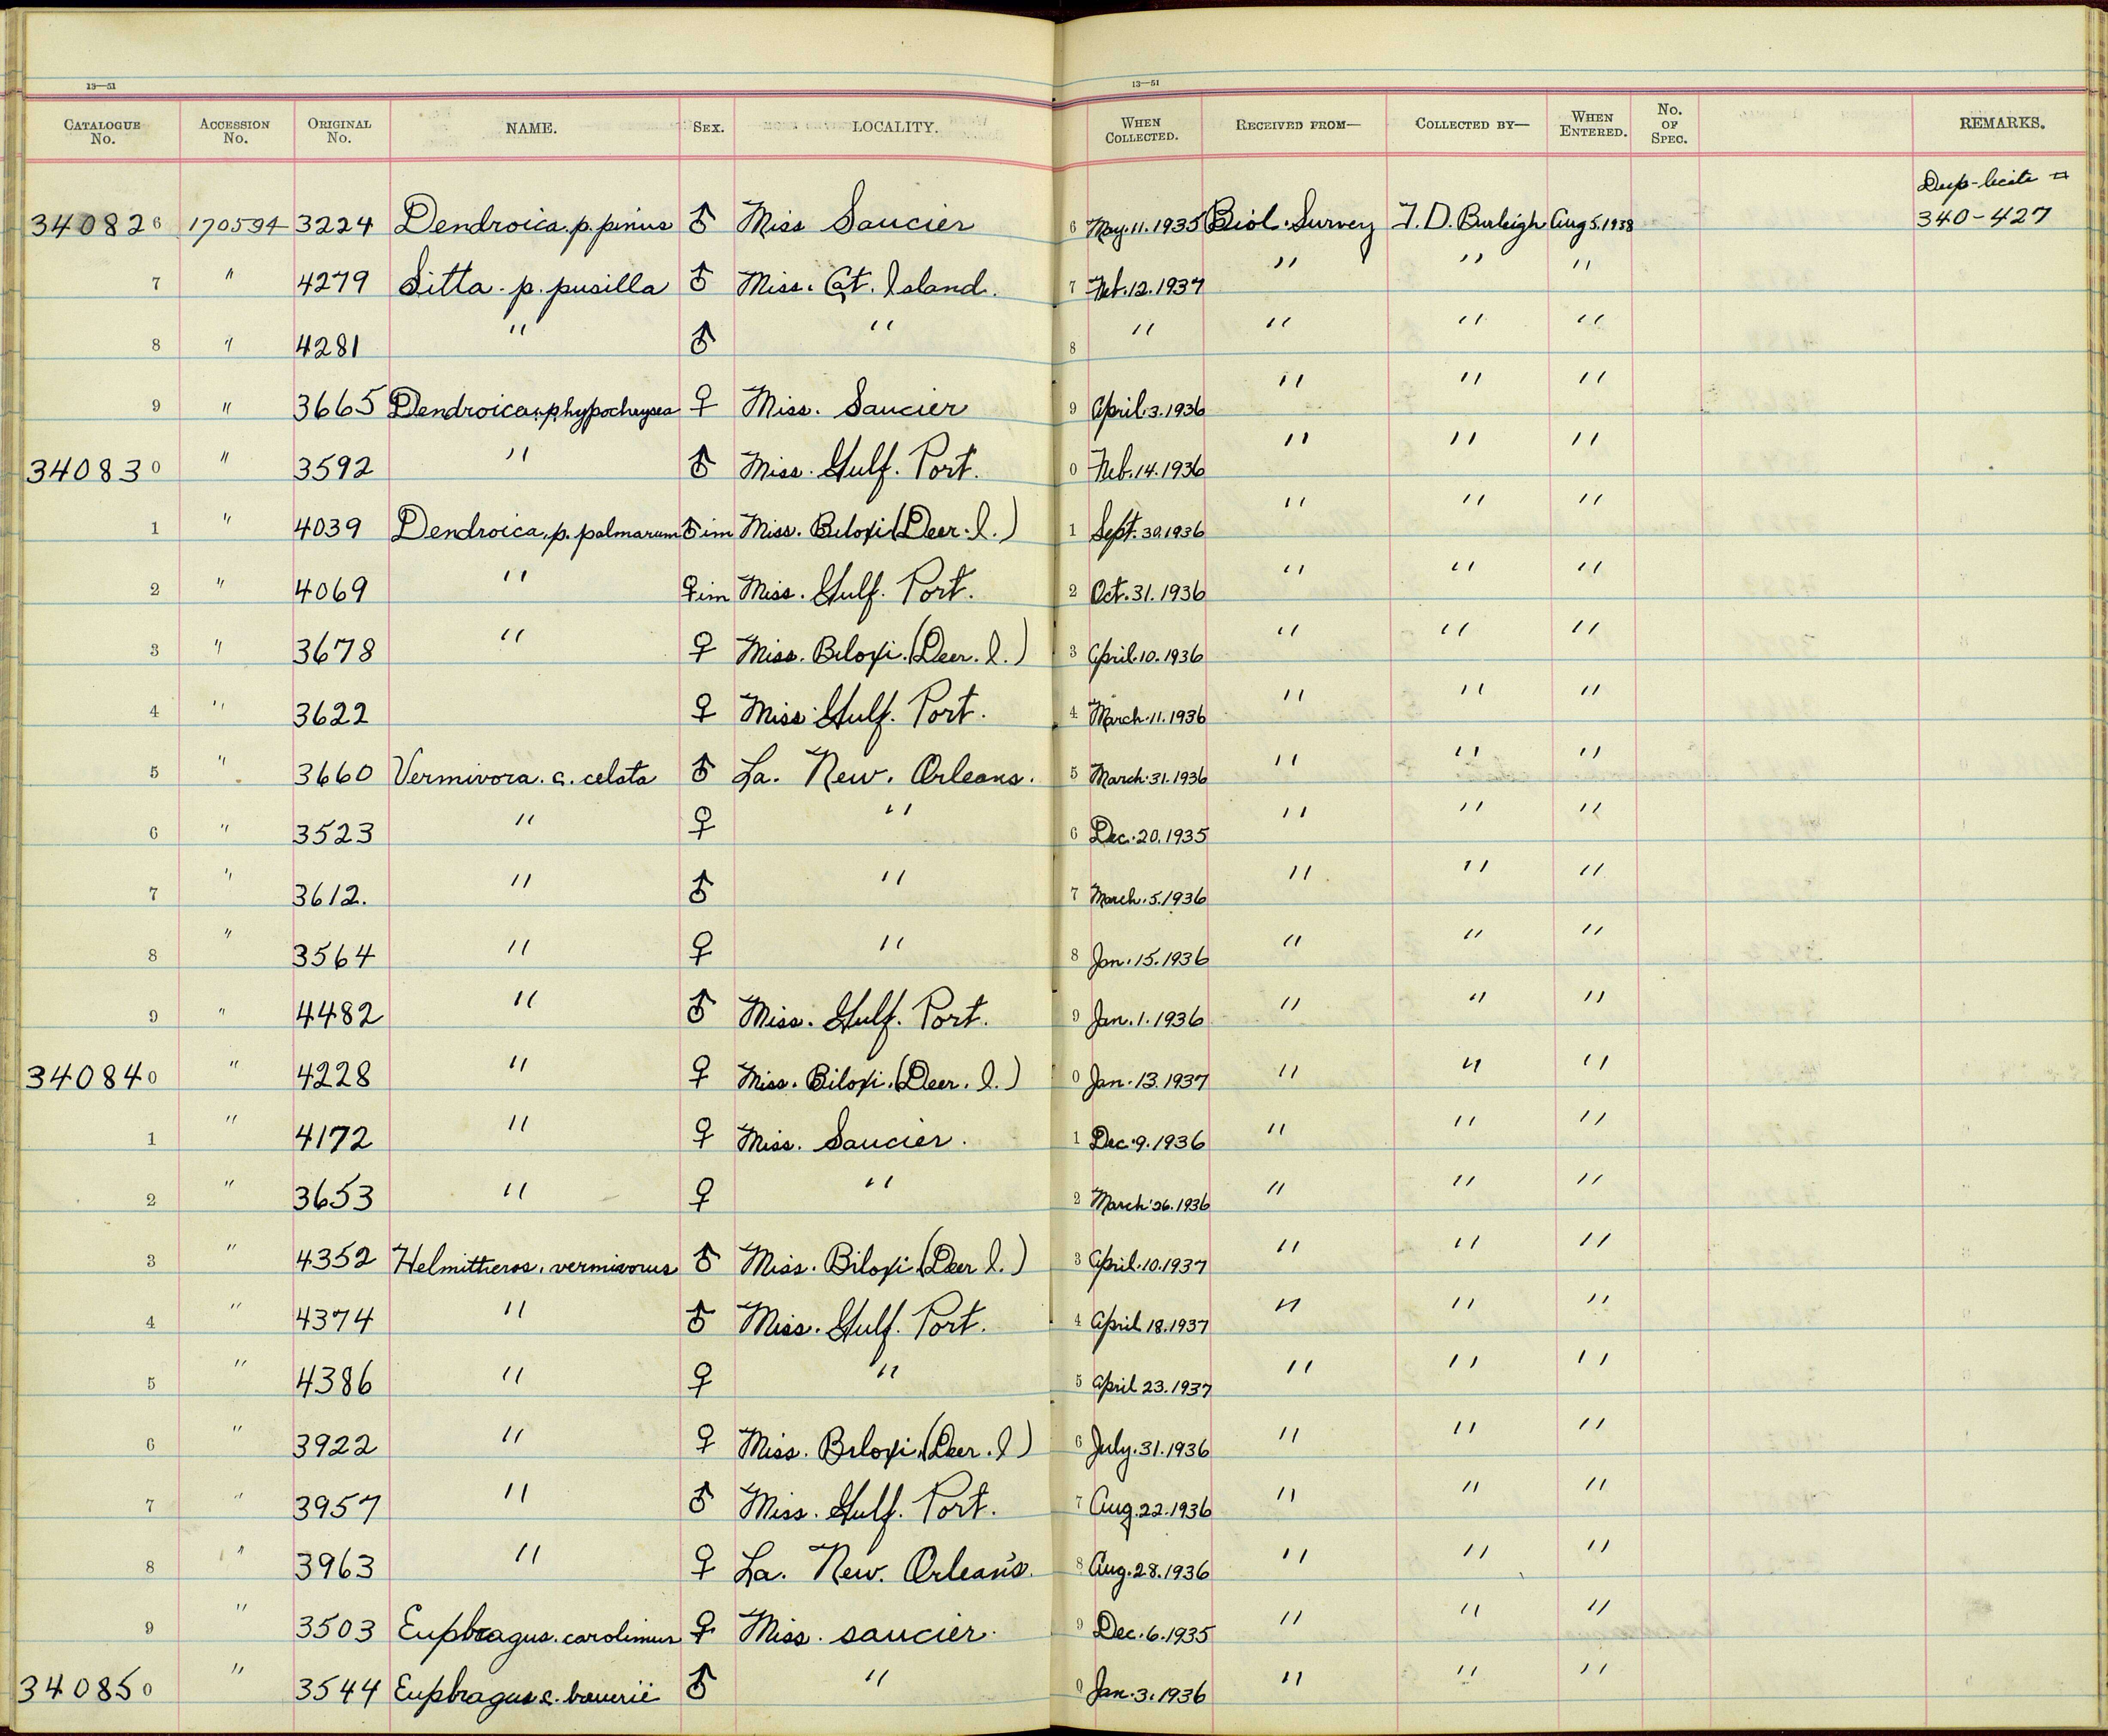 13—51 13—51
CATALOGUE No. ACCESSION No. ORIGINAL No. NAME. SEX. LOCALITY. WHEN COLLECTED. RECEIVED FROM— COLLECTED BY— WHEN ENTERED. No. OF SPEC. REMARKS.
Dup-licate =
340826 170594 3224 Dendroica.p.pinus ♂ Miss Saucier 6 May.11.1935 Biol. Survey T.D. Burleigh Aug 5.1938 340-427
7 " 4279 Sitta. p. pusilla ♂ Miss. Cat. Island. 7 Feb.12.1937 " " "
8 " 4281 " ♂ " 8 " " " "
9 " 3665 Dendroica.p.hypochrysea ♀ Miss. Saucier 9 April.3.1936 " " "
340830 " 3592 " ♂ Miss. Gulf. Port. 0 Feb.14.1936 " " "
1 " 4039 Dendroica.p. palmarum ♂ im Miss. Biloxi (Deer. I.) 1 Sept. 30.1936 " " "
2 " 4069 " ♀ im Miss. Gulf. Port. 2 Oct.31.1936 " " "
3 " 3678 " ♀ Miss. Biloxi. (Deer. I.) 3 April.10.1936 " " "
4 " 3622 ♀ Miss. Gulf. Port. 4 March.11.1936 " " "
5 " 3660 Vermivora. c. celata ♂ La. New. Orleans. 5 March.31.1936 " " "
6 " 3523 " ♀ " 6 Dec.20.1935 " " "
7 " 3612. " ♂ " 7 March.5.1936 " " "
8 " 3564 " ♀ " 8 Jan.15.1936 " " "
9 " 4482 " ♂ Miss. Gulf. Port. 9 Jan.1.1936 " " "
340840 " 4228 " ♀ Miss. Biloxi. (Deer. I.) 0 Jan.13.1937 " " "
1 " 4172 " ♀ Miss. Saucier. 1 Dec.9.1936 " " "
2 " 3653 " ♀ " 2 March.26.1936 " " "
3 " 4352 Helmitheros. vermivorus ♂ Miss. Biloxi (Deer I.) 3 April.10.1937 " " "
4 " 4374 " ♂ Miss. Gulf. Port. 4 April 18.1937 " " "
5 " 4386 " ♀ " 5 April 23.1937 " " "
6 " 3922 " ♀ Miss. Biloxi. (Deer. I) 6 July.31.1936 " " "
7 " 3957 " ♂ Miss. Gulf. Port. 7 Aug.22.1936 " " "
8 " 3963 " ♀ La. New. Orleans. 8 Aug.28.1936 " " "
9 " 3503 Euphagus. carolinus ♀ Miss. saucier. 9 Dec.6.1935 " " "
340850 " 3544 Euphagus c. ♂ " 0 Jan.3.1936 " " "